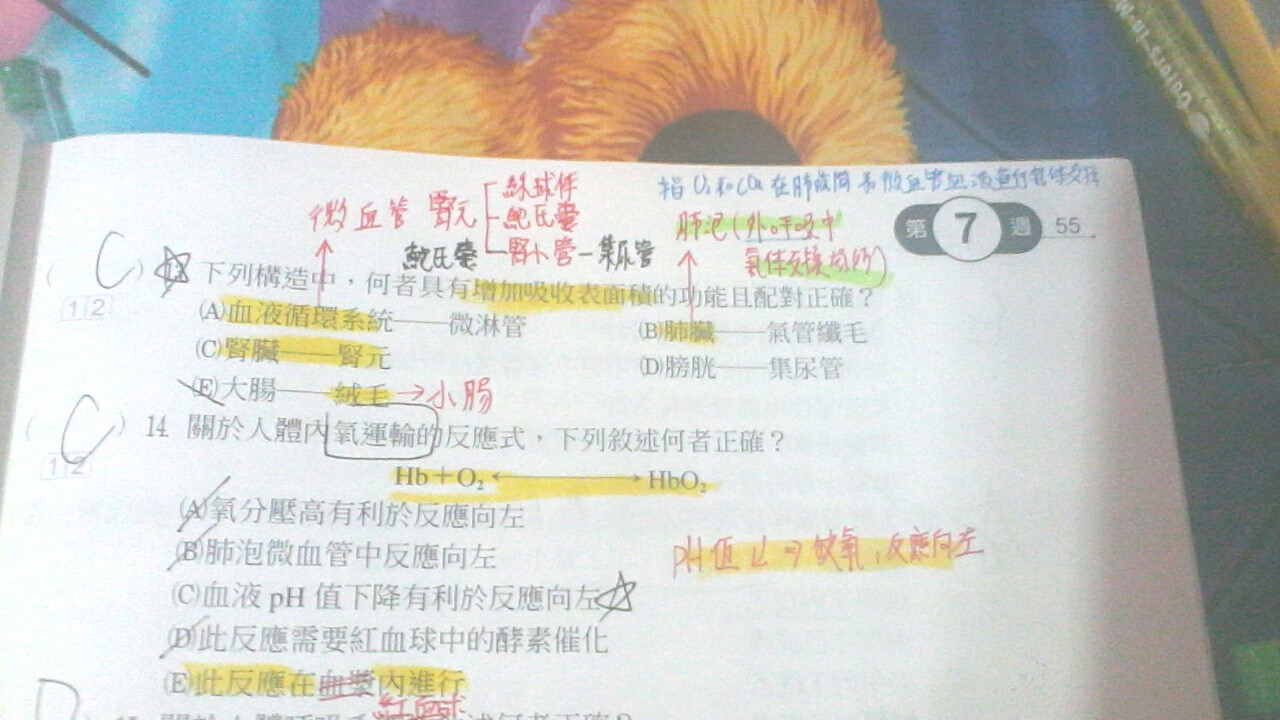 指O₂和CO₂在肺
微血管 腎元 絲球体
鮑氏囊
鮑氏囊 腎小管—集尿管
肺泡(外呼吸中
氣体交換場所)
第 7 週 55
C
( ) 下列構造中，何者具有增加吸收表面積的功能且配對正確？
12
(A)血液循環系統——微淋管 (B)肺臟——氣管纖毛
(C)腎臟——腎元 (D)膀胱——集尿管
(E)大腸——絨毛→小腸
( C ) 14. 關於人體內氧運輸的反應式，下列敘述何者正確？
12
Hb＋O₂←→HbO₂
(A)氧分壓高有利於反應向左
(B)肺泡微血管中反應向左
pH值↓⇒缺氧，反應向左
(C)血液 pH 值下降有利於反應向左☆
(D)此反應需要紅血球中的酵素催化
(E)此反應在血漿內進行
紅血球